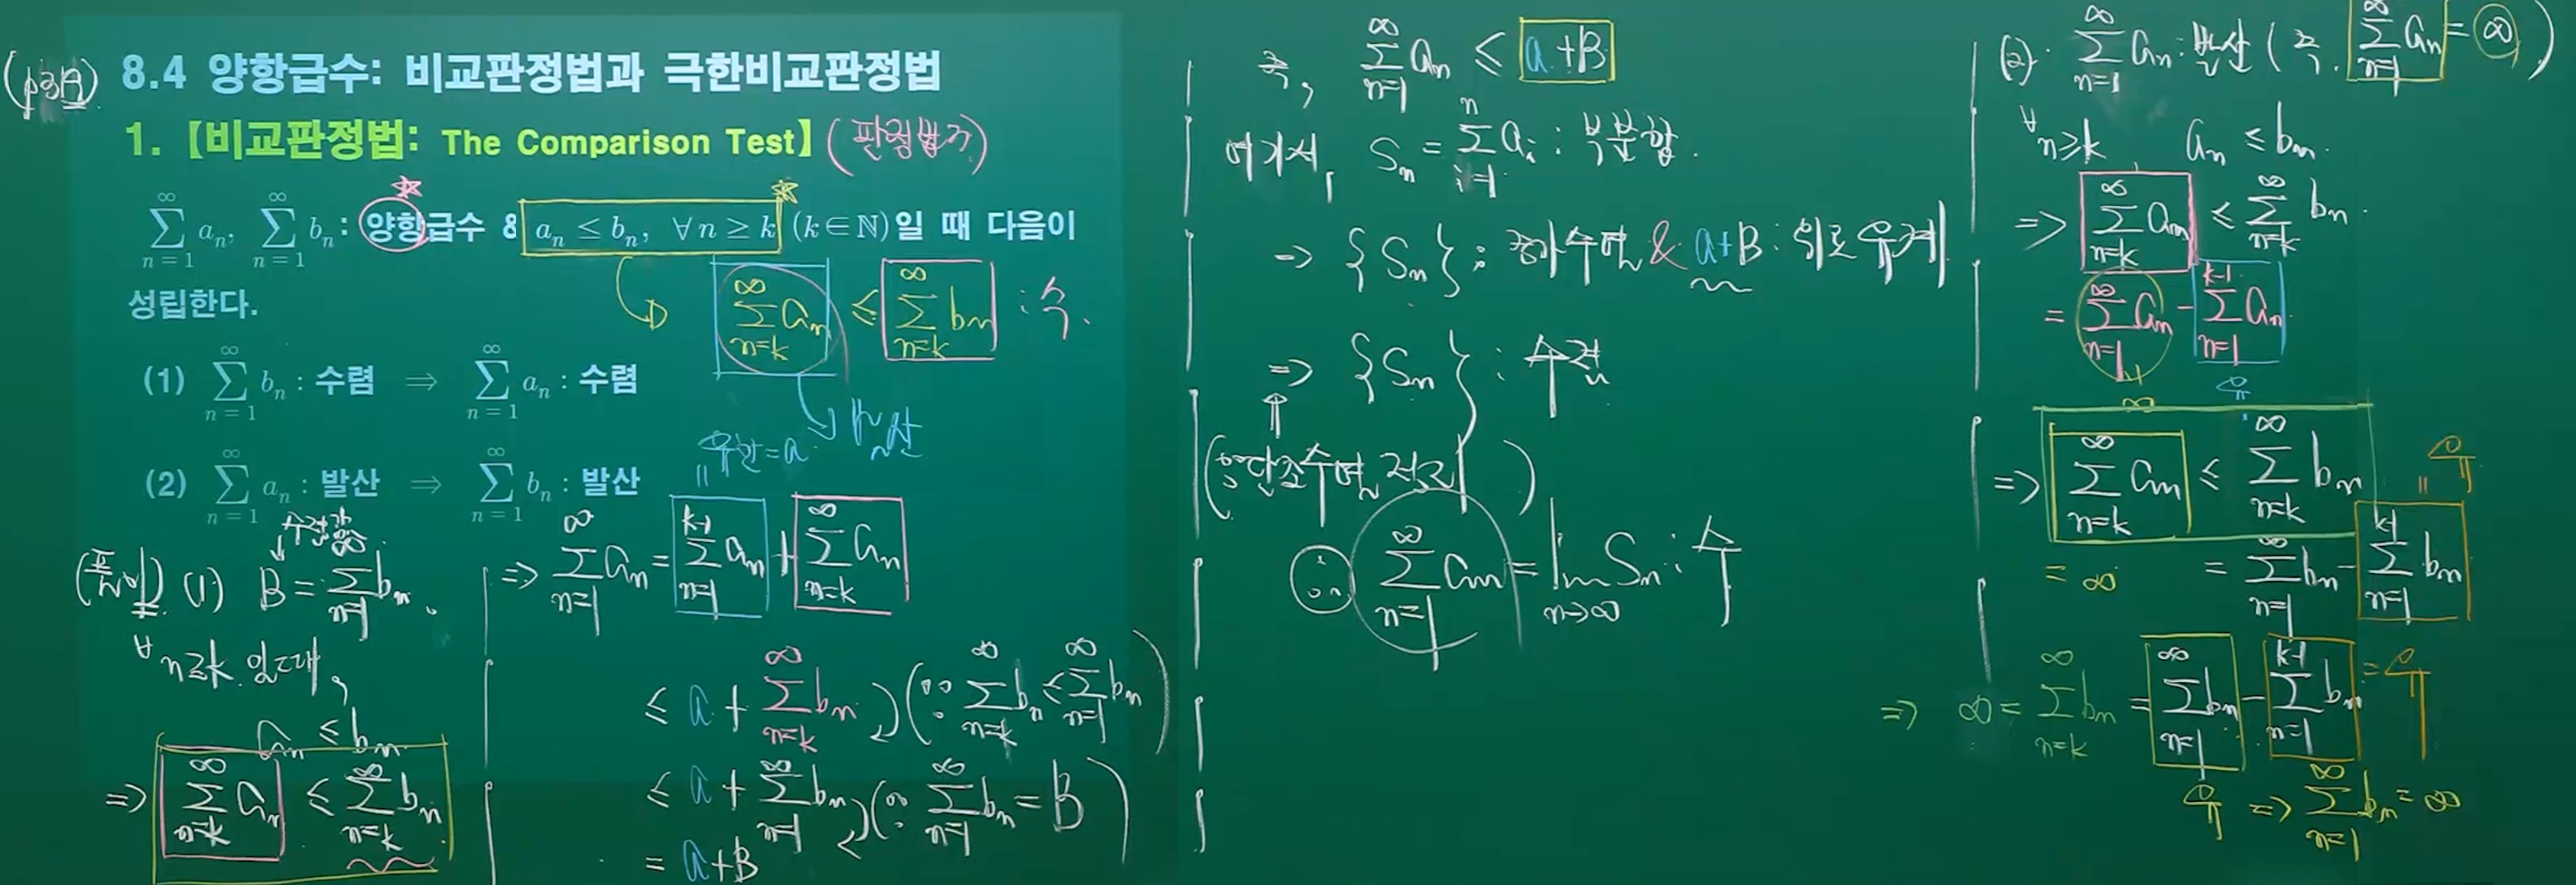 8.4 양항급수: 비교판정법과 극한비교판정법
1. 【비교판정법: The Comparison Test】
∞ ∑ n=1 aₙ, ∞ ∑ n=1 bₙ : 양항급수 & aₙ ≤ bₙ, ∀n ≥ k (k∈ℕ)일 때 다음이
성립한다.
∞ ∑ n=k aₙ ≤ ∞ ∑ n=k bₙ : 수.
(1) ∞ ∑ n=1 bₙ : 수렴 ⇒ ∞ ∑ n=1 aₙ : 수렴
발산
유한=a
(2) ∞ ∑ n=1 aₙ : 발산 ⇒ ∞ ∑ n=1 bₙ : 발산
(풀이) (1) B = ∞ ∑ n=1 bₙ.
∀n≥k 일때,
aₙ ≤ bₙ
=> ∞ ∑ n=k aₙ ≤ ∞ ∑ n=k bₙ
=> ∞ ∑ n=1 aₙ = k-1 ∑ n=1 aₙ + ∞ ∑ n=k aₙ
≤ a + ∞ ∑ n=k bₙ (∵ ∞ ∑ n=k bₙ ≤ ∞ ∑ n=1 bₙ)
≤ a + ∞ ∑ n=1 bₙ (∵ ∞ ∑ n=1 bₙ = B)
= a+B
즉, ∞ ∑ n=1 aₙ ≤ a+B
여기서, Sₙ = n ∑ i=1 aᵢ : 부분합.
=> {Sₙ} : 증가수열 & a+B : 위로유계
=> {Sₙ} : 수렴
⇑
(단조수렴정리)
∴ ∞ ∑ n=1 aₙ = lim n→∞ Sₙ : 수
(2). ∞ ∑ n=1 aₙ : 발산 (즉, ∞ ∑ n=1 aₙ = ∞)
∀n≥k aₙ ≤ bₙ.
=> ∞ ∑ n=k aₙ ≤ ∞ ∑ n=k bₙ.
= ∞ ∑ n=1 aₙ - k-1 ∑ n=1 aₙ
∞ 유
=> ∞ ∑ n=k aₙ ≤ ∞ ∑ n=k bₙ
= ∞ = ∞ ∑ n=1 bₙ - k-1 ∑ n=1 bₙ = 유
=> ∞ = ∞ ∑ n=k bₙ = ∞ ∑ n=1 bₙ - k-1 ∑ n=1 bₙ = 유
=> ∞ ∑ n=1 bₙ = ∞